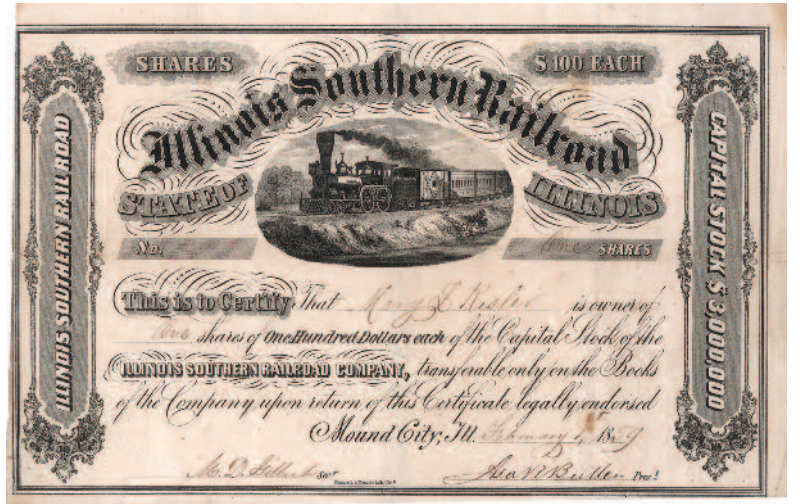 SHARES
$100 EACH
Illinois Southern Railroad
STATE OF ILLINOIS
No.
One SHARES
ILLINOIS SOUTHERN RAIL ROAD
CAPITAL STOCK $3,000,000
This is to Certify That Mary L Kesler is owner of
One shares of One Hundred Dollars each of the Capital Stock of the
ILLINOIS SOUTHERN RAILROAD COMPANY, transferable only on the Books
of the Company upon return of this Certificate legally endorsed
Mound City, Ill. February 1, 1859
M. D. Secy
Butler Prest